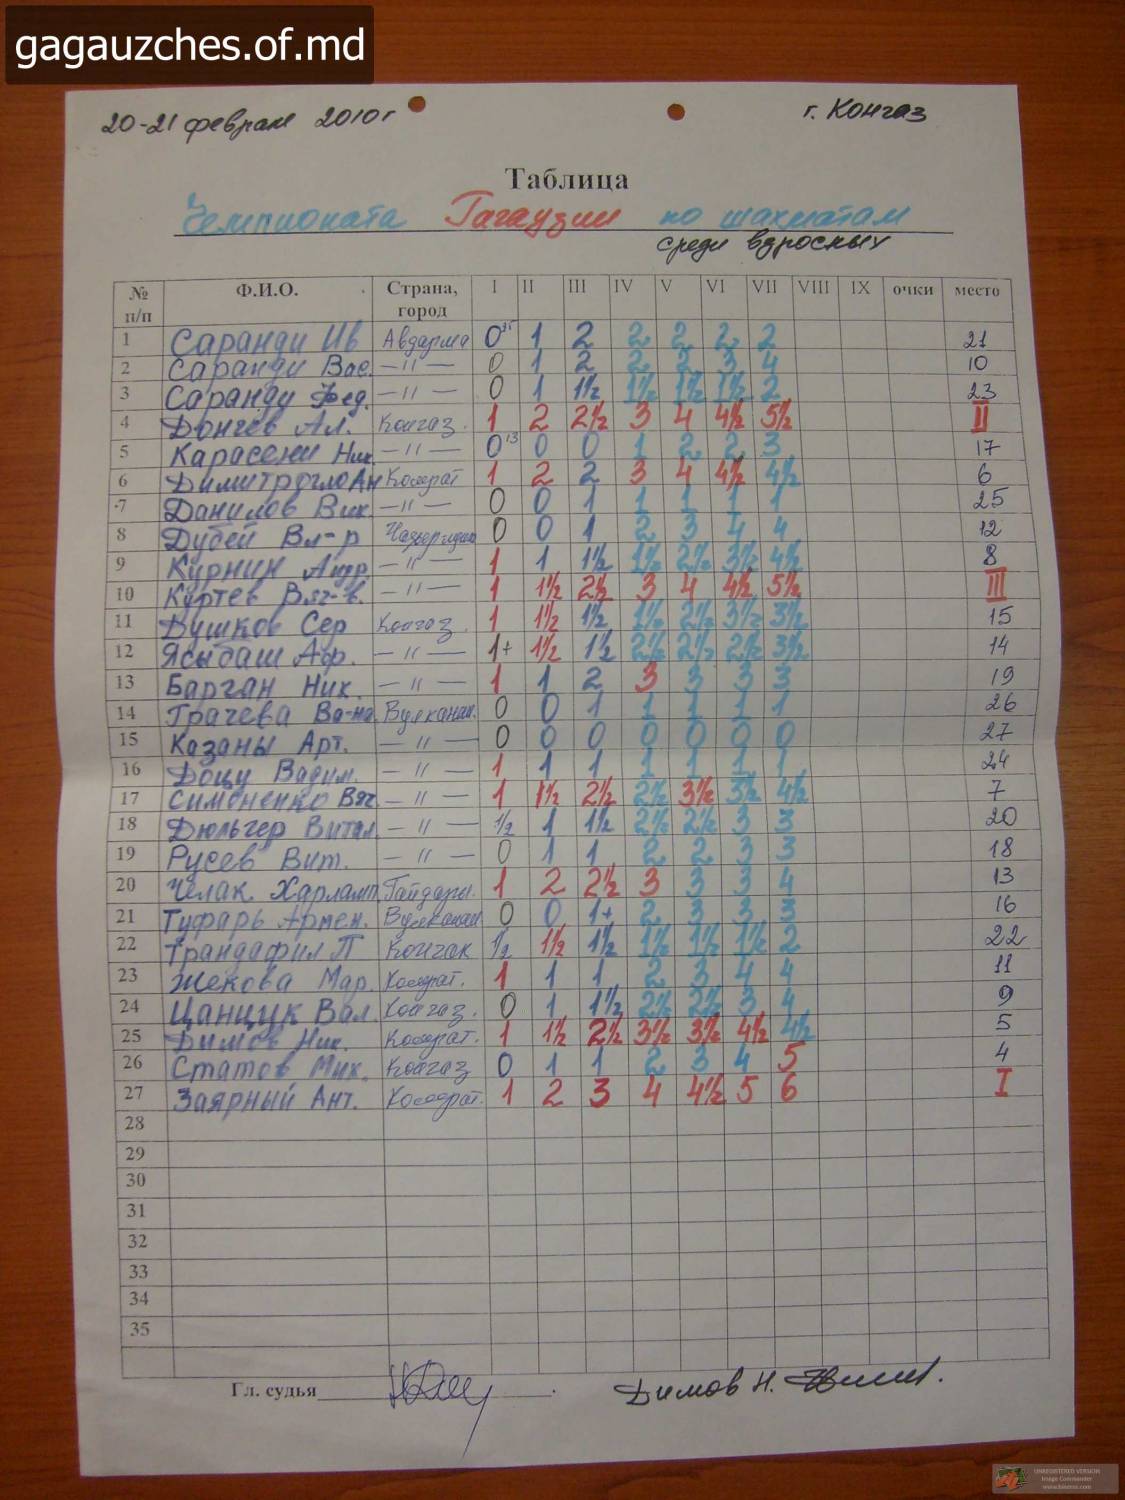 gagauzches.of.md
20-21 февраля 2010г г. Конгаз
Таблица
Чемпионата Гагаузии по шахматам
среди взрослых
№ п/п Ф.И.О. Страна, город I II III IV V VI VII VIII IX очки место
1 Саранди Ив Авдарма 0 1 2 2 2 2 2 21
2 Саранди Вас. —〃— 0 1 2 2 2 3 4 10
3 Саранди Фед. —〃— 0 1 1½ 1½ 1½ 1½ 2 23
4 Дончев Ал. Конгаз. 1 2 2½ 3 4 4½ 5½ II
5 Карасени Ник —〃— 0 0 0 1 2 2 3 17
6 Димитрогло Ан Комрат 1 2 2 3 4 4½ 4½ 6
7 Данилов Вик. —〃— 0 0 1 1 1 1 1 25
8 Дубей Вл-р 0 0 1 2 3 4 4 12
9 Курнин Андр —〃— 1 1 1½ 1½ 2½ 3½ 4½ 8
10 Куртев Вяч-в. —〃— 1 1½ 2½ 3 4 4½ 5½ III
11 Душков Сер Конгаз. 1 1½ 1½ 1½ 2½ 3½ 3½ 15
12 Ясыбаш Афр. —〃— 1+ 1½ 1½ 2½ 2½ 2½ 3½ 14
13 Барган Ник. —〃— 1 1 2 3 3 3 3 19
14 Грачева Вулканеш. 0 0 1 1 1 1 1 26
15 Казаны Арт. —〃— 0 0 0 0 0 0 0 27
16 Доцу Вадим. —〃— 1 1 1 1 1 1 1 24
17 Симоненко Вяч. —〃— 1 1½ 2½ 2½ 3½ 3½ 4½ 7
18 Дюльгер Витал. —〃— ½ 1 1½ 2½ 2½ 3 3 20
19 Русев Вит. —〃— 0 1 1 2 2 3 3 18
20 Челак. Харламп. Гайдары. 1 2 2½ 3 3 3 4 13
21 Туфарь Армен. Вулканеш 0 0 1+ 2 3 3 3 16
22 Трандафил П Конгаз ½ 1½ 1½ 1½ 1½ 1½ 2 22
23 Жекова Мар. Комрат. 1 1 1 2 3 4 4 11
24 Цанцук Вал. Конгаз. 0 1 1½ 2½ 2½ 3 4 9
25 Димов Ник. Комрат. 1 1½ 2½ 3½ 3½ 4½ 4½ 5
26 Статов Мих. Конгаз 0 1 1 2 3 4 5 4
27 Заярный Ант. Комрат. 1 2 3 4 4½ 5 6 I
28
29
30
31
32
33
34
35
Гл. судья Димов Н.
UNREGISTERED VERSION
Image Commander